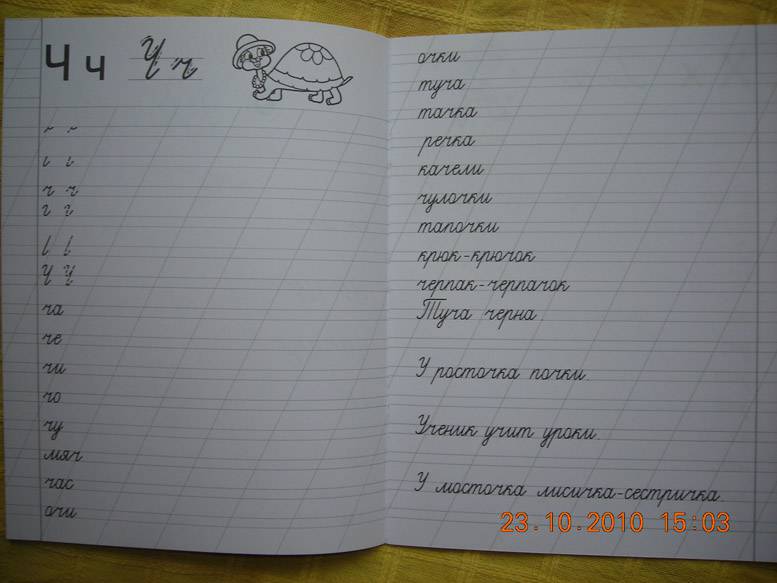 Ч ч Ч ч
ч ч
Ч Ч
ча
че
чи
чо
чу
мяч
час
очи
очки
туча
тачка
речка
качели
чулочки
тапочки
крюк-крючок
черпак-черпачок
Туча черна.
У росточка почки.
Ученик учит уроки.
У мосточка лисичка-сестричка.
23.10.2010 15:03